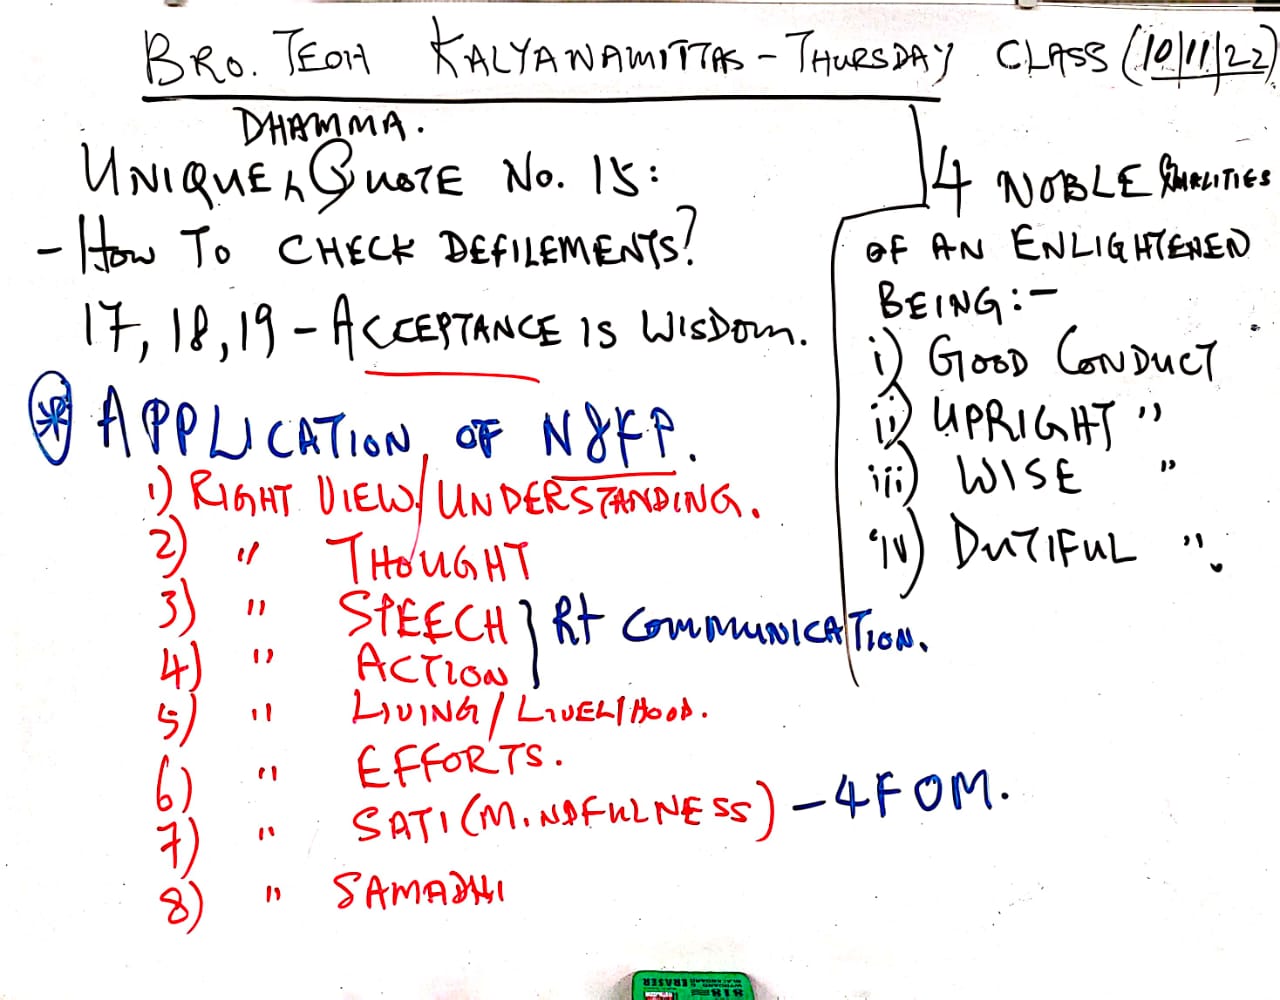 BRO. TEOH KALYANAMITTAS - THURSDAY CLASS (10/11/22)
DHAMMA.
UNIQUE ^ QUOTE No. 15:
- How To CHECK DEFILEMENTS?
17, 18, 19 - ACCEPTANCE IS WISDOM.
⊛ APPLICATION OF N8FP.
1) RIGHT VIEW/UNDERSTANDING.
2) " THOUGHT
3) " SPEECH } Rt COMMUNICATION.
4) " ACTION
5) " LIVING/LIVELIHOOD.
6) " EFFORTS.
7) " SATI (MINDFULNESS) - 4FOM.
8) " SAMADHI
4 NOBLE QUALITIES
OF AN ENLIGHTENED
BEING:-
i) GOOD CONDUCT
ii) UPRIGHT "
iii) WISE "
iv) DUTIFUL ".
ERASER
818